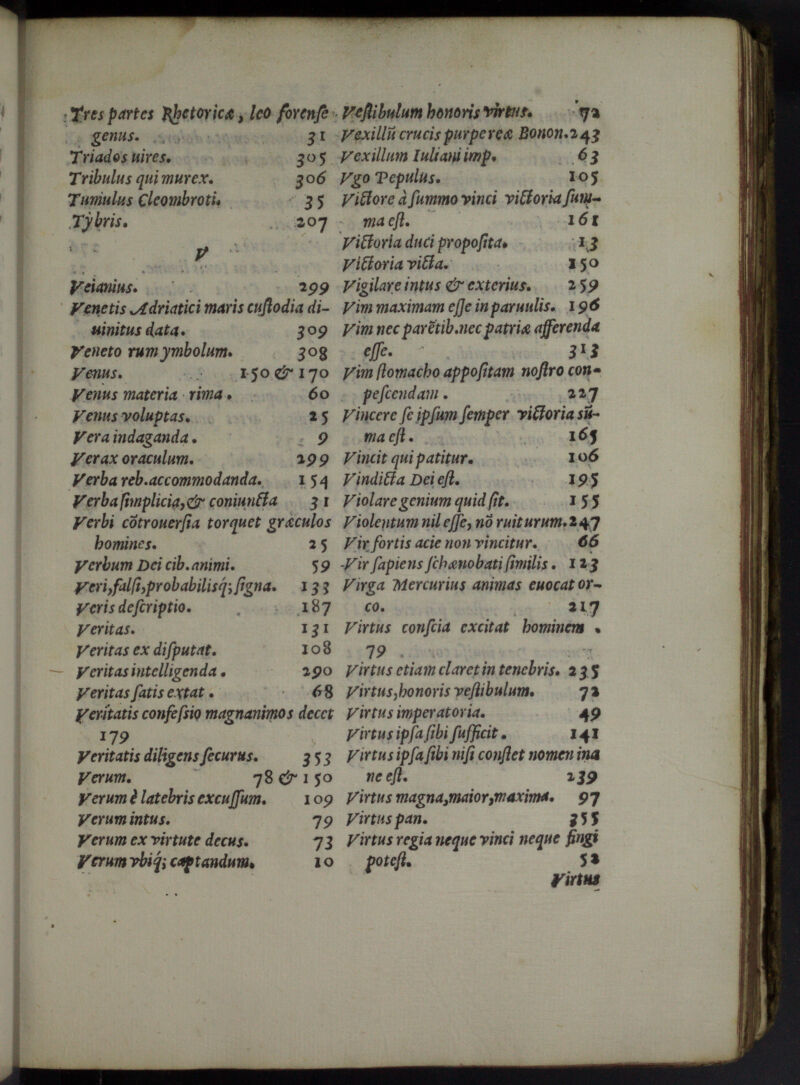 Tres partes Rhetoricæ, leo forense
genus. 31
Triados uires. 305
Tribulus qui murex. 306
Tumulus Cleombroti. 35
Tybris. 207
V
Veianius. 299
Venetis Adriatici maris custodia di-
uinitus data. 309
Veneto rum ymbolum. 308
Venus. 150 & 170
Venus materia rima. 60
Venus voluptas. 25
Vera indaganda. 9
Verax oraculum. 299
Verba reb.accommodanda. 154
Verba simplicia,& coniuncta 31
Verbi cõtrouersia torquet græculos
homines. 25
Verbum Dei cib.animi. 59
Veri,falsi,probabilisq; signa. 133
Veris descriptio. 187
Veritas. 131
Veritas ex disputat. 108
Veritas intelligenda. 290
Veritas satis extat. 68
Veritatis confessio magnanimos decet
179
Veritatis diligens securus. 353
Verum. 78 & 150
Verum è latebris excussum. 109
Verum intus. 79
Verum ex virtute decus. 73
Verum vbiq; captandum. 10
Vestibulum honoris virtus. 72
Vexillũ crucis purpereæ Bonon.243
Vexillum Iuliani imp. 63
Vgo Pepulus. 105
Victore à summo vinci victoria sum-
ma est. 161
Victoria duci proposita. 13
Victoria victa. 150
Vigilare intus & exterius. 259
Vim maximam esse in paruulis. 196
Vim nec parẽtib.nec patriæ afferenda
esse. 313
Vim stomacho appositam nostro con-
pescendam. 227
Vincere se ipsum semper victoria sũ-
ma est. 165
Vincit qui patitur. 106
Vindicta Dei est. 195
Violare genium quid sit. 155
Violentum nil esse, nõ ruiturum.247
Vir fortis acie non vincitur. 66
Vir sapiens schænobati similis. 123
Virga Mercurius animas euocat or-
co. 217
Virtus conscia excitat hominem.
79
Virtus etiam claret in tenebris. 235
Virtus,honoris vestibulum. 72
Virtus imperatoria. 49
Virtus ipsa sibi sufficit. 141
Virtus ipsa sibi nisi constet nomen ina
ne est. 239
Virtus magna,maior,maxima. 97
Virtus pan. 355
Virtus regia neque vinci neque fingi
potest. 52
Virtus